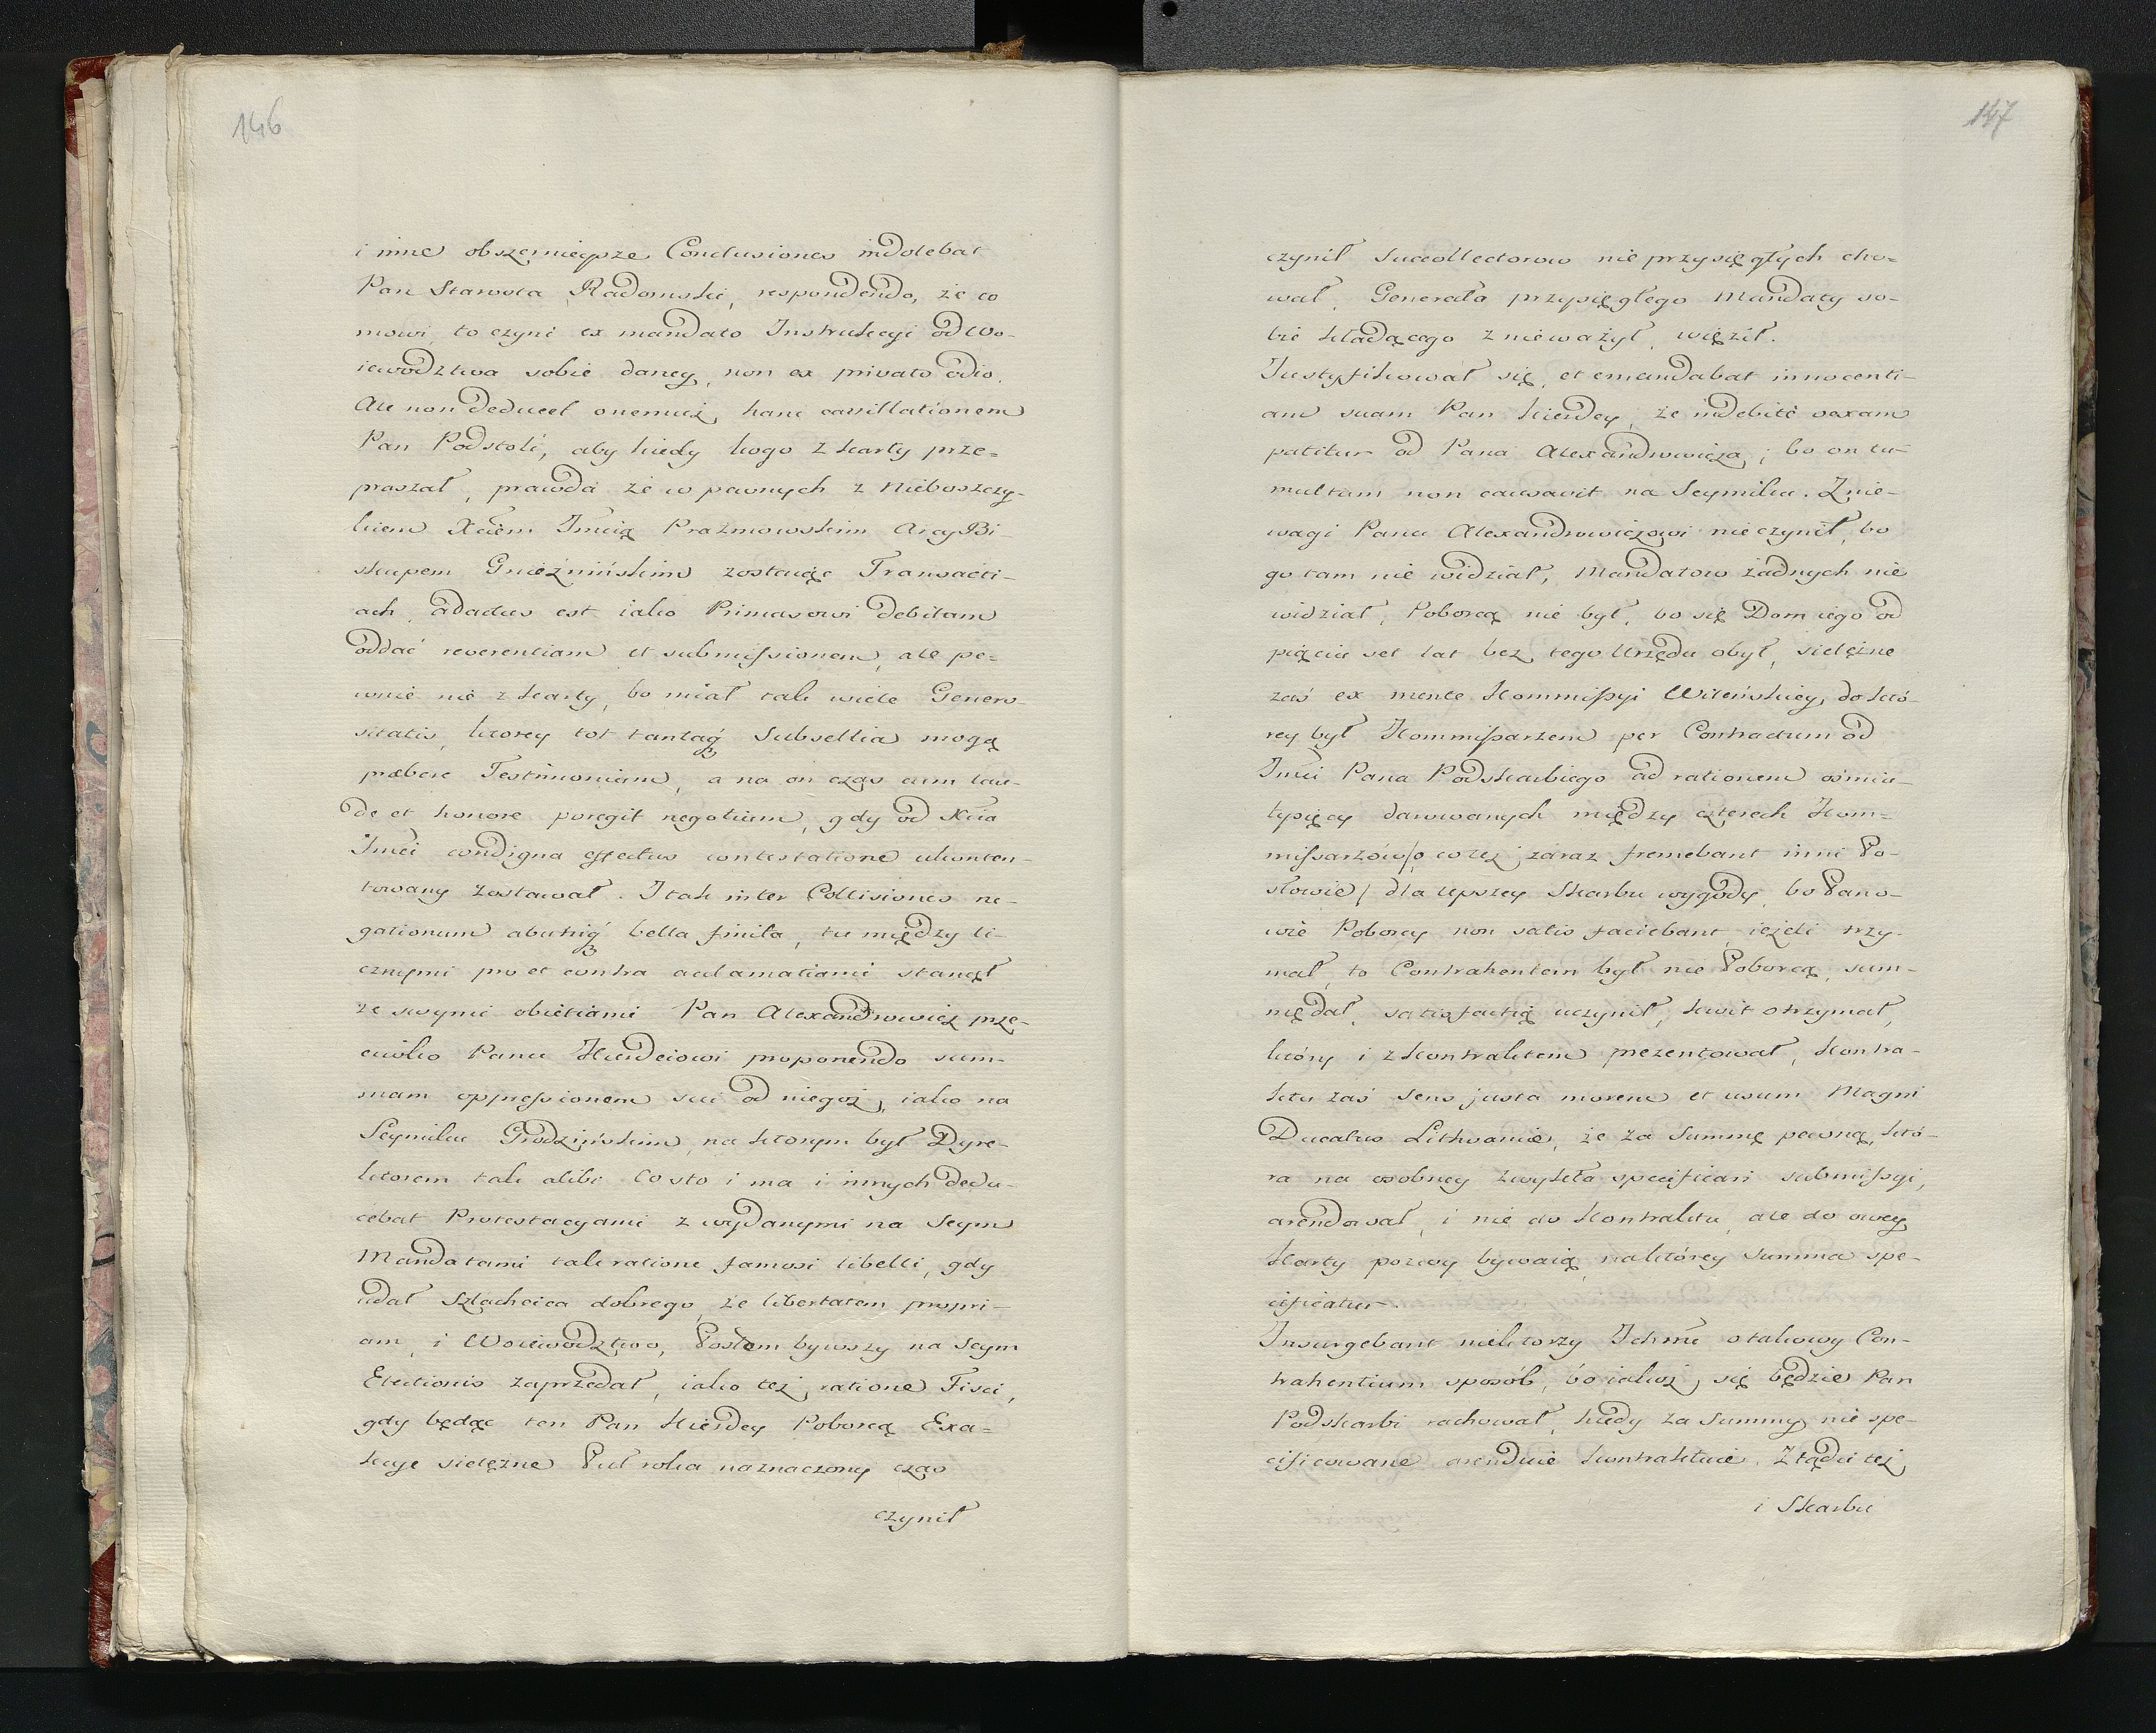 146
i inne obszernieysze Conclusiones indolebat
Pan Starosta Radomski, respondendo, że co
mowi, to czyni ex mandato Instrukcyi od Wo-
iewodztwa sobie daney, non ex privato odio.
Ale non deducel onemuż, hanc cavillationem
Pan Podstoli, aby kiedy kogo z karty prze=
praszał, prawda że w pewnych z Nieboszczy-
kiem Xciem Imcią Prażmowskim ArcyBi-
skupem Gnieźnińskim zostaiąc Transacti-
ach, adactus est iako Primasowi debitam
oddać reverentiam et submissionem, ale pe=
wnie nie z karty, bo miał tak wiele Genero-
sitatis, ktorey tot tantaq₃ Subsellia mogą
præbere Testimonium, a na on czas cum lau-
de et honore peregit negotium, gdy od Xcia
Imci condigna effectus contestatione ukonten-
towany zostawał. I tak inter Collisiones ne-
gationum abutriq₃ bella finita, tu między li-
cznymi pro et contra acclamatiami stanął
ze swymi obiekiami Pan Alexandrowicz prze-
ciwko Panu Kierdeiowi proponendo sum-
mam oppressionem sui od niegoż, iako na
Seymiku Grodzińskim, na ktorym był Dyre-
ktorem tak alibi. Co sto i ma i innych dedu-
cebat Protestacyami z wydanymi na Seym
Mandatami tak ratione famosi libelli, gdy
udał Szlachcica dobrego, że libertatem propri-
am, i Woiewodztwo, Posłem bywszy na Seym
Electionis zaprzedał, iako też ratione Fisci,
gdy będąc ten Pan Kierdey Poborcą Exa=
kcye sielężne Puł roka naznaczony czas
czynił
147
czynił Succollectorow nie przysięgłych cho=
wał, Generała przysięgłego Mandaty so-
bie kładącego znieważył, więził.
Justyfikował się, et emundabat innocenti-
am suam Pan Kierdey, że indebitè vexam
patitur od Pana Alexandrowicza; bo on tu-
multum non causavit na Seymiku. Znie-
wagi Panu Alexandrowiczowi nie czynił, bo
go tam nie widział, Mandatow żadnych nie
widział, Poborcą nie był, bo się Dom iego od
pięciu set lat bez tego Urzędu obył, sielężne
zaś ex mente Kommissyi Wileńskiey, do któ-
rey był Kommissarzem per Contractum od
Imci Pana Podskarbiego ad rationem ośmiu-
tysięcy darowanych między czterech Kom=
missarzów /: o co też zaraz fremebant inni Po-
słowie / dla lepszey Skarbu wygody, bo Pano-
wie Poborcy non satis faciebant, ieżeli trzy-
mał, to Contrahentem był nie Poborcą, sum-
mę dał, satisfactią uczynił, kwit otrzymał,
który i z Kontraktem prezentował, Kontra-
ktu zaś sens justa morem et usum Magni
Ducatus Lithvaniæ, że za Summę pewną, któ-
ra na osobney zwykła specificari submissyi,
arendował, i nie do Kontraktu, ale do owey
Karty pozwy bywaią, na którey Summa spe-
cificatur.
Insurgebant niektorzy Ichmć o takowy Con-
trahentium sposób, bo iakoż się będzie Pan
Podskarbi rachował, kiedy za Summy nie spe-
cificowane arenduie kontraktuie. Ztądci też
i Skarbu